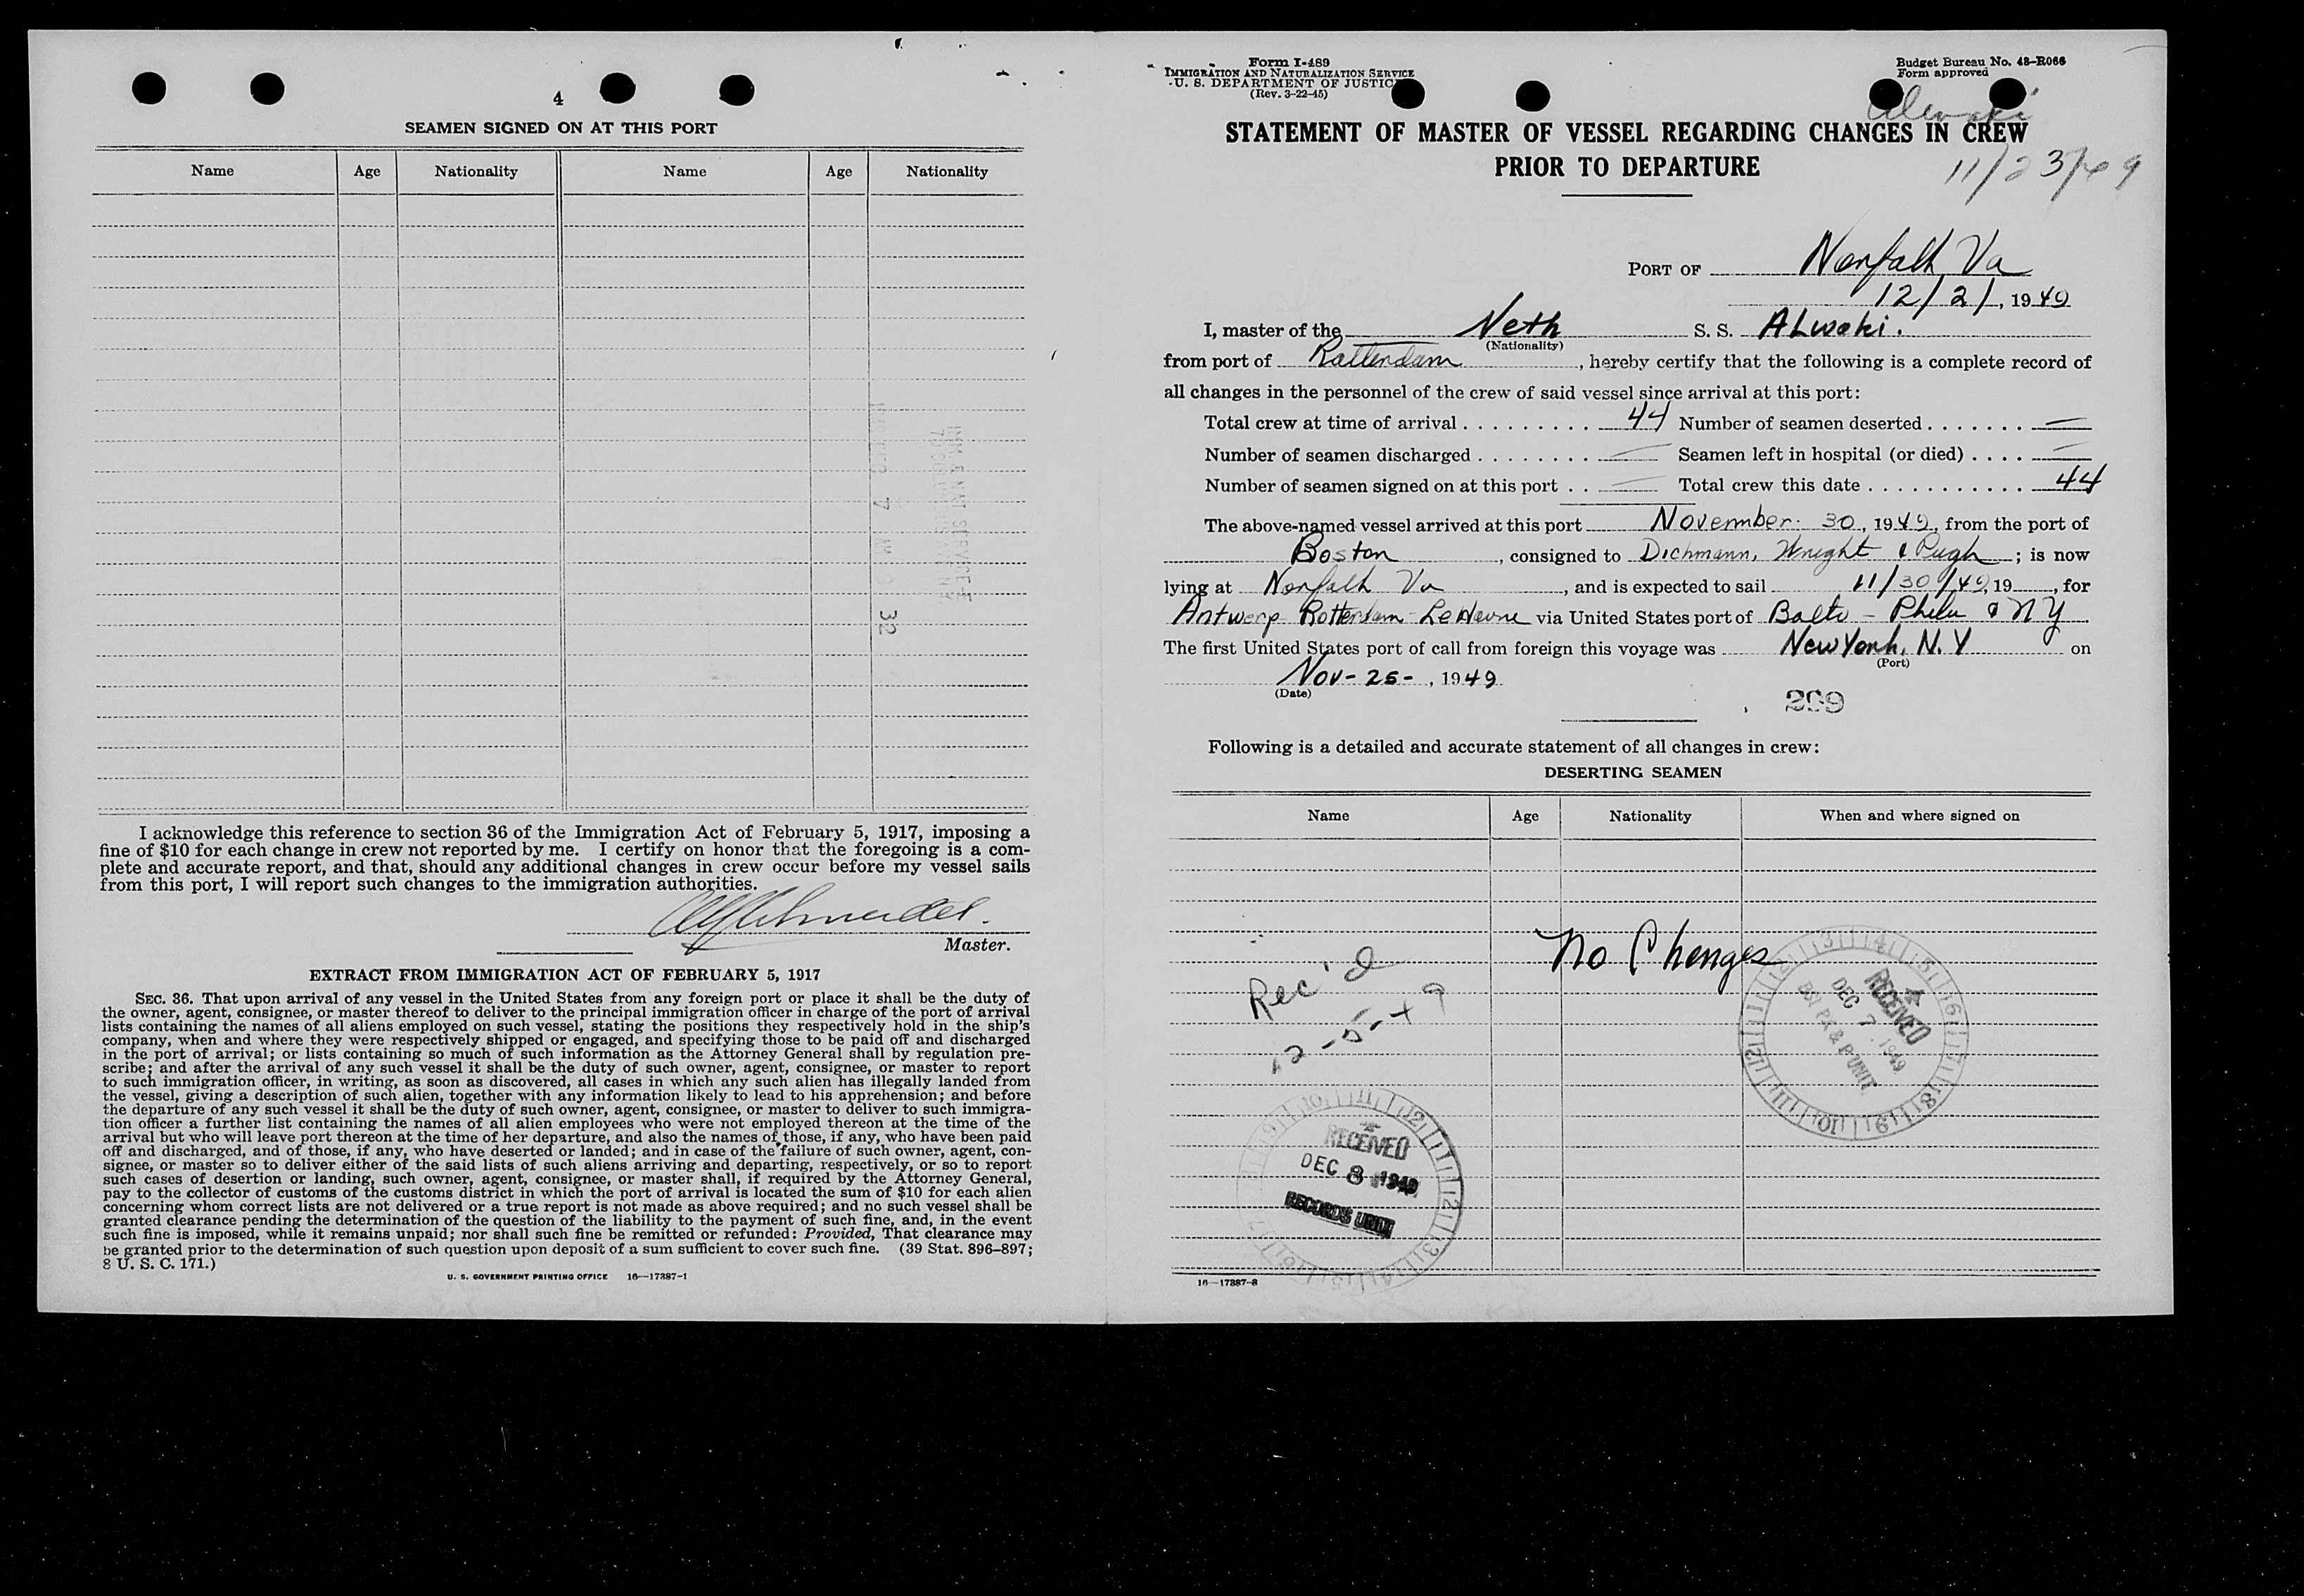 4
SEAMEN SIGNED ON AT THIS PORT
Name Age Nationality Name Age Nationality
I acknowledge this reference to section 36 of the Immigration Act of February 5, 1917, imposing a
fine of $10 for each change in crew not reported by me. I certify on honor that the foregoing is a com-
plete and accurate report, and that, should any additional changes in crew occur before my vessel sails
from this port, I will report such changes to the immigration authorities.
Master.
EXTRACT FROM IMMIGRATION ACT OF FEBRUARY 5, 1917
SEC. 36. That upon arrival of any vessel in the United States from any foreign port or place it shall be the duty of
the owner, agent, consignee, or master thereof to deliver to the principal immigration officer in charge of the port of arrival
lists containing the names of all aliens employed on such vessel, stating the positions they respectively hold in the ship's
company, when and where they were respectively shipped or engaged, and specifying those to be paid off and discharged
in the port of arrival; or lists containing so much of such information as the Attorney General shall by regulation pre-
scribe; and after the arrival of any such vessel it shall be the duty of such owner, agent, consignee, or master to report
to such immigration officer, in writing, as soon as discovered, all cases in which any such alien has illegally landed from
the vessel, giving a description of such alien, together with any information likely to lead to his apprehension; and before
the departure of any such vessel it shall be the duty of such owner, agent, consignee, or master to deliver to such immigra-
tion officer a further list containing the names of all alien employees who were not employed thereon at the time of the
arrival but who will leave port thereon at the time of her departure, and also the names of those, if any, who have been paid
off and discharged, and of those, if any, who have deserted or landed; and in case of the failure of such owner, agent, con-
signee, or master so to deliver either of the said lists of such aliens arriving and departing, respectively, or so to report
such cases of desertion or landing, such owner, agent, consignee, or master shall, if required by the Attorney General,
pay to the collector of customs of the customs district in which the port of arrival is located the sum of $10 for each alien
concerning whom correct lists are not delivered or a true report is not made as above required; and no such vessel shall be
granted clearance pending the determination of the question of the liability to the payment of such fine, and, in the event
such fine is imposed, while it remains unpaid; nor shall such fine be remitted or refunded: Provided, That clearance may
be granted prior to the determination of such question upon deposit of a sum sufficient to cover such fine. (39 Stat. 896-897;
8 U. S. C. 171.)
U. S. GOVERNMENT PRINTING OFFICE 16—17387-1
Form I-489
IMMIGRATION AND NATURALIZATION SERVICE
U. S. DEPARTMENT OF JUSTICE
(Rev. 3-22-45)
Budget Bureau No. 43-R066
Form approved
STATEMENT OF MASTER OF VESSEL REGARDING CHANGES IN CREW
PRIOR TO DEPARTURE
11/23/49
PORT OF Norfolk Va
12/2/, 1949
I, master of the Neth S. S. ALwaki.
(Nationality)
from port of Rotterdam, hereby certify that the following is a complete record of
all changes in the personnel of the crew of said vessel since arrival at this port:
Total crew at time of arrival . . . . . . . . . 44 Number of seamen deserted . . . . . . . —
Number of seamen discharged . . . . . . . . — Seamen left in hospital (or died) . . . . —
Number of seamen signed on at this port . . — Total crew this date . . . . . . . . . . . . 44
The above-named vessel arrived at this port November 30, 1949, from the port of
Boston, consigned to Dichmann, Wright & Pugh; is now
lying at Norfolk Va, and is expected to sail 11/30/49, 19 , for
Antwerp Rotterdam LeHavre via United States port of Balto - Phila & NY.
The first United States port of call from foreign this voyage was New York, N.Y on
(Port)
Nov-25-, 1949
(Date)
299
Following is a detailed and accurate statement of all changes in crew:
DESERTING SEAMEN
Name Age Nationality When and where signed on
No Changes
Rec'd
12-5-49
RECEIVED
DEC 7 1949
RECEIVED
DEC 8 1949
RECORDS UNIT
16—17387-3